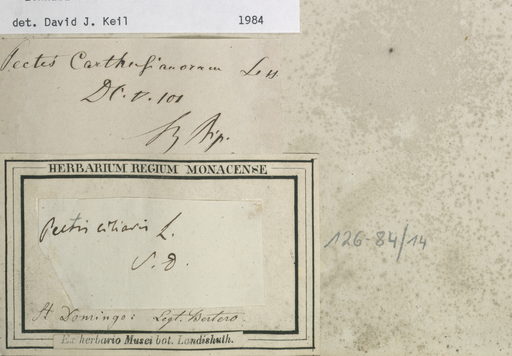 det. David J. Keil 1984
Pectis Carthusianorum Less.
DC. V. 101
Sz Bip.
HERBARIUM REGIUM MONACENSE
Pectis ciliaris L.
S. D.
St Domingo: Legt. Bertero.
Ex herbario Musei bot. Landishuth.
126-84/14